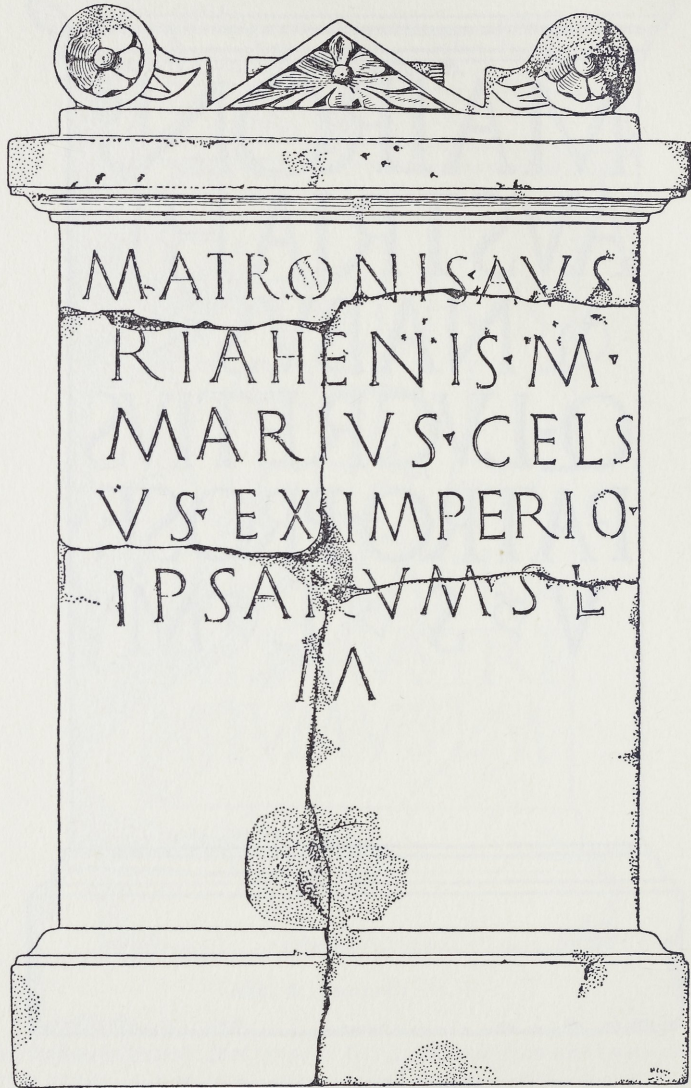 MATRONIS·AVS
RIAHENIS·M·
MARIVS·CELS
VS·EX·IMPERIO·
IPSARVM S L
M